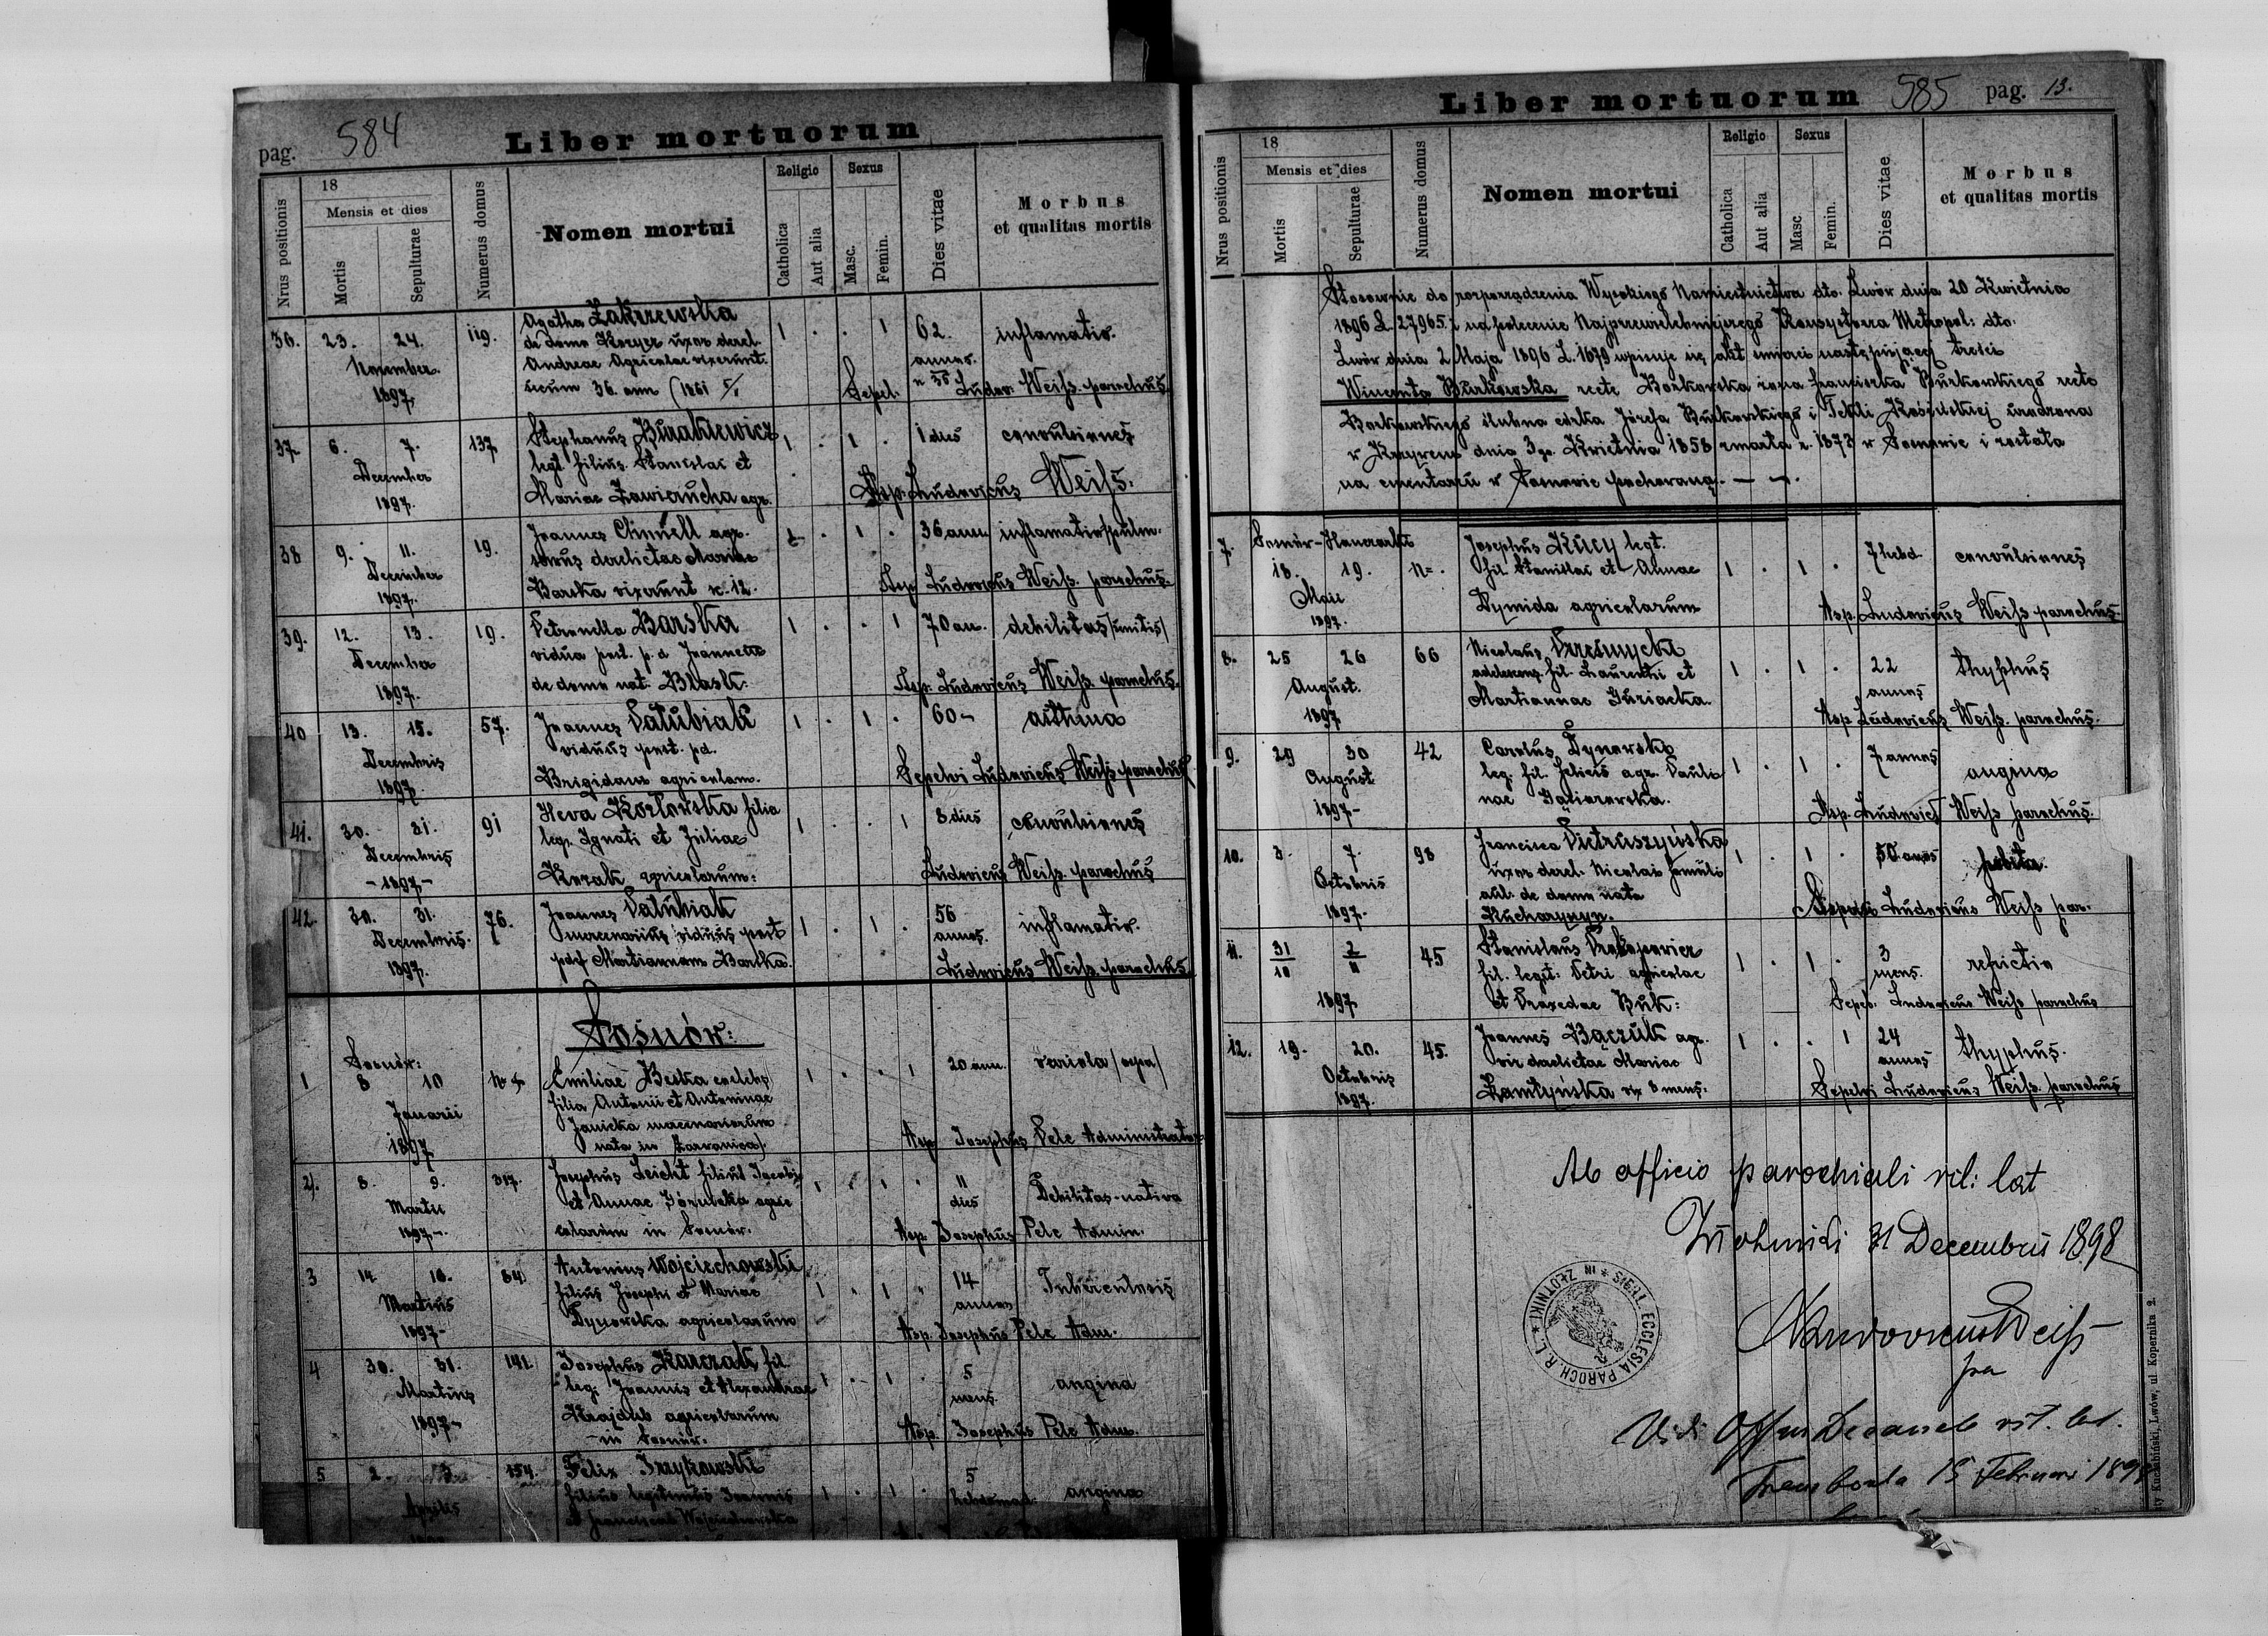 pag. 584
Liber mortuorum
Nrus positionis
18
Mensis et dies
Mortis
Sepulturae
Numerus domus
Nomen mortui
Religio
Catholica
Aut alia
Sexus
Masc.
Femin.
Dies vitae
Morbus
et qualitas mortis
36. 23. 24. 119. Agatha Zakrzewska 1 . . 1 62. inflamatio.
de domo uxor derel. annos.
November Andreae Agricolae vixerunt
1897. secum 36. ann (1861 Sepel. Ludov. Weiss. parochus
37 6. 7. 137 Stephanus Burakiewicz 1 . 1 . 1 dies convulsiones
legt. filius Stanislai et
December Mariae Zawierucha agr. Asp. Ludovicus Weiss.
1897.
38 9. 11. 19. Joannes Chmiell agr. 1 . 1 . 36 ann. inflamatio pulm.
December derelictae Mariae
1897. Barska vixerunt 12. Asp Ludovicus Weiss. parochus.
39. 12. 13. 19. Petronella Barska 1 . . 1 70 an. debilitas
December vidua post. p. d Joannem
1897. de domo nat. Blask: Asp. Ludovicus Weiss parochus.
40 13. 15. 57. Joannes Patubiak 1 . 1 . 60 asthma
Decembris viduus post. pd.
1897. Brigidam agricolam. Sepelvi Ludovicus Weiss parochus
41. 30. 31. 91 Heva Kozłowska filia 1 . . 1 8 dies convulsiones
Decembris leg. Ignati et Juliae
-1897- Kozak agricolarum: Ludovicus Weiss. parochus
42. 30. 31. 76. Joannes Patubiak 1 . 1 . 56 inflamatio.
Decembris. mercenarius viduus post annos.
1897. Martiannam Bartka. Ludovicus Weiss. parochus
Sosnów:
Sosnów:
1 8 10 Emiliae Beska coelebs 1 . . 1 20 ann. variola /ospa/
filia Antonii et Antoninae
Januarii Janicka mercenariorum
1897 nata in Asp Josephus Pelc Administrator
2). 8. 9. 317. Josephus Leicht filius Jacobi 1 . 1 . 11 Debilitas-nativa
Martii et Annae agri dies
1897.- colarum in Sosnów. Asp. Josephus Pelc Admin.
3 14. 16. 84. Antonius Wojciechowski 1 . 1 . 14 Tuberculosis
Martius filius Josephi et Mariae annor.
1897- Dynowska agricolarum Asp. Josephus Pelc Adm.
4 30. 31. 141. Josephus Karczak fil 1 . 1 . 5 angina
Martius leg. Joannis et Alexandrae mens.
1897- agricolarum Asp. Josephus Pelc Adm.
in Sosnów.
5 2. 3. 154. Felix 1 . 1 . 5 angina
Aprilis filius legitimus Joannis hebdomad.
et Franciscae Wojciechowska
Liber mortuorum 585 pag. 13.
Nrus positionis
18
Mensis et dies
Mortis
Sepulturae
Numerus domus
Nomen mortui
Religio
Catholica
Aut alia
Sexus
Masc
Femin.
Dies vitae
Morbus
et qualitas mortis
Stosownie do rozporządzenia Wysokiego Namiestnictwa dto. Lwów dnia 20 Kwietnia
1896 L. 27965. i na polecenie Najprzewielebniejszego Konsystorza Metropol: dto.
Lwów dnia 2 Maja 1896 L. 1679 wpisuje się akt śmierci następującej treści
Wincenta Burkowska recte Borkowska żona Franciszka Burkowskiego recte
Borkowskiego ślubna córka Józefa Burkowskiego i Tekli urodzona
w dnia 3go Kwietnia 1858 zmarła r. 1873 w Sosnowie i została
na cmentarzu w Sosnowie pochowaną. — —.
7. Sosnów-
18. 19. Josephus Kucy legt. 1 . 1 . 7 hebd. convulsiones
Maii fil. Stanislai et Annae
1897. Dymida agricolarum Asp. Ludovicus Weiss parochus.
8. 25 26 66 Nicolaus 1 . 1 . 22 thyphus
August. adolescens. fil. Laurentii et annos
1897 Martiannae Asp Ludovicus Weiss. parochus.
9. 29 30 42 Carolus Dynowsky 1 . 1 . 7 annos angina
August leg. fil. Felicis agr. Pauli
1897- nae Asp. Ludovicus Weiss parochus.
10. 3. 7. 98 Francisca Pietruszyńska 1 . 1 . 50 annos
Octobris uxor derel. Nicolai famuli
1897. aul. de domo nata
Ludovicus Weiss par.
11. 31/10 2/11 45 Stanislaus Prokopowicz 1 . 1 . 3
fil. legit: Petri agricolae mens.
1897. et Praxedae Buk: Sepel. Ludovicus Weiss parochus
12. 19. 20. 45. Joannes Bączuk agr. 1 . . 1 24 thyphus.
Octobris vir derelictae Mariae annos
1897. vix 8 mens: Sepelvi Ludovicus Weiss. parochus
Ab officio parochiali rit: lat
31 Decembris 1898
Ludovicus Weiss
pa
SIGILL. ECCLESIA PAROCH. R. L. * IN ZŁOTNIKI *
Vidi Offium Decanale rit. lat.
Trembowla 15 Februari 189
Kuczabiński, Lwów, ul. Kopernika 2.